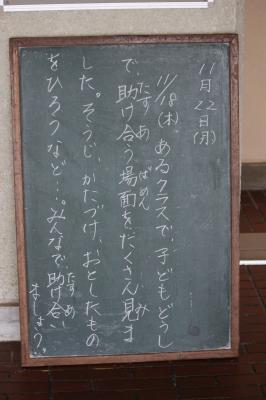 11月22日(月)
11/18(木)、あるクラスで、子どもどうし
で、助け合う場面をたくさん見ま
した。そうじ、かたづけ、おとしたもの
をひろうなど…。みんなで、助け合い
ましょう。
たす あ ばめん み
たす あ